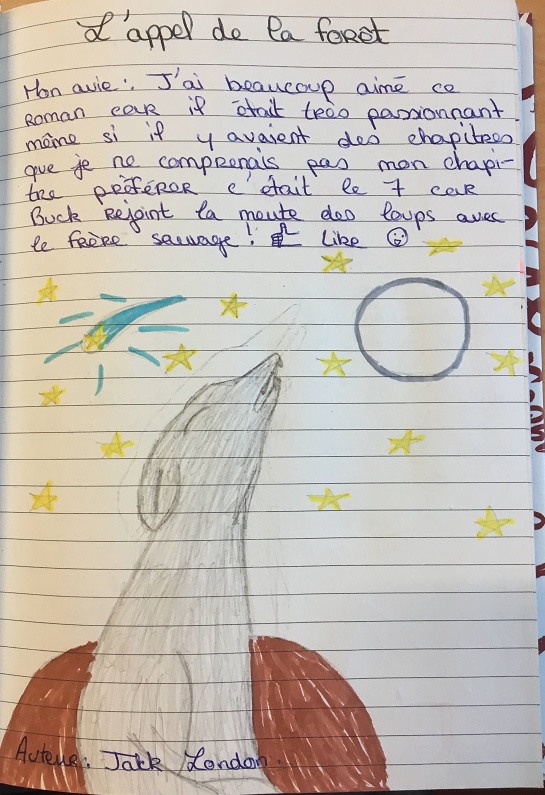 L'appel de la foRêt
Mon avie : J'ai beaucoup aimé ce
Roman caR il était très passionnant
même si il y avaient des chapitres
que je ne comprenais pas mon chapi-
tre pRéféRER c'était le 7 caR
Buck Rejoint la meute des loups avec
le FRèRe sauvage ! Like
Auteur : Jack London.